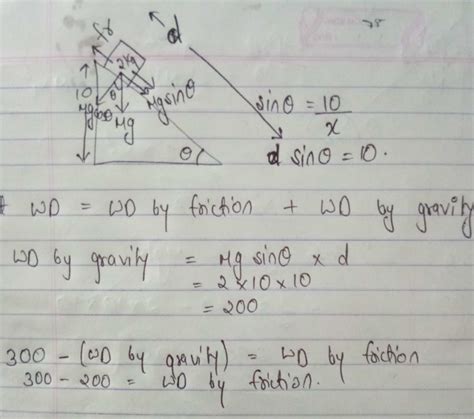 d
fr
2kg
10
θ
Mg sinθ
Mg
θ
sinθ = 10/x
d sinθ = 10.
WD = WD by friction + WD by gravity
WD by gravity = Mg sinθ x d
= 2 x 10 x 10
= 200
300 - (WD by gravity) = WD by fiction
300 - 200 = WD by friction.